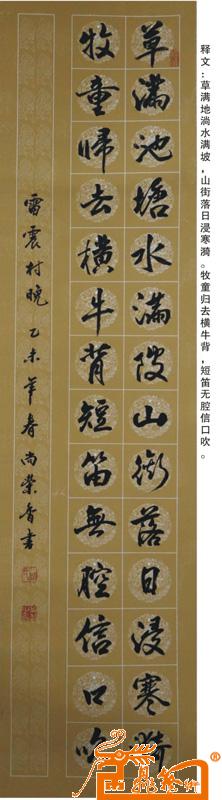 释文：草满地淌水满坡，山街落日浸寒漪。牧童归去横牛背，短笛无腔信口吹。
草滿池塘水滿陂山銜落日浸寒漪
牧童歸去橫牛背短笛無腔信口吹
雷震村晚 乙未年春尚榮香書